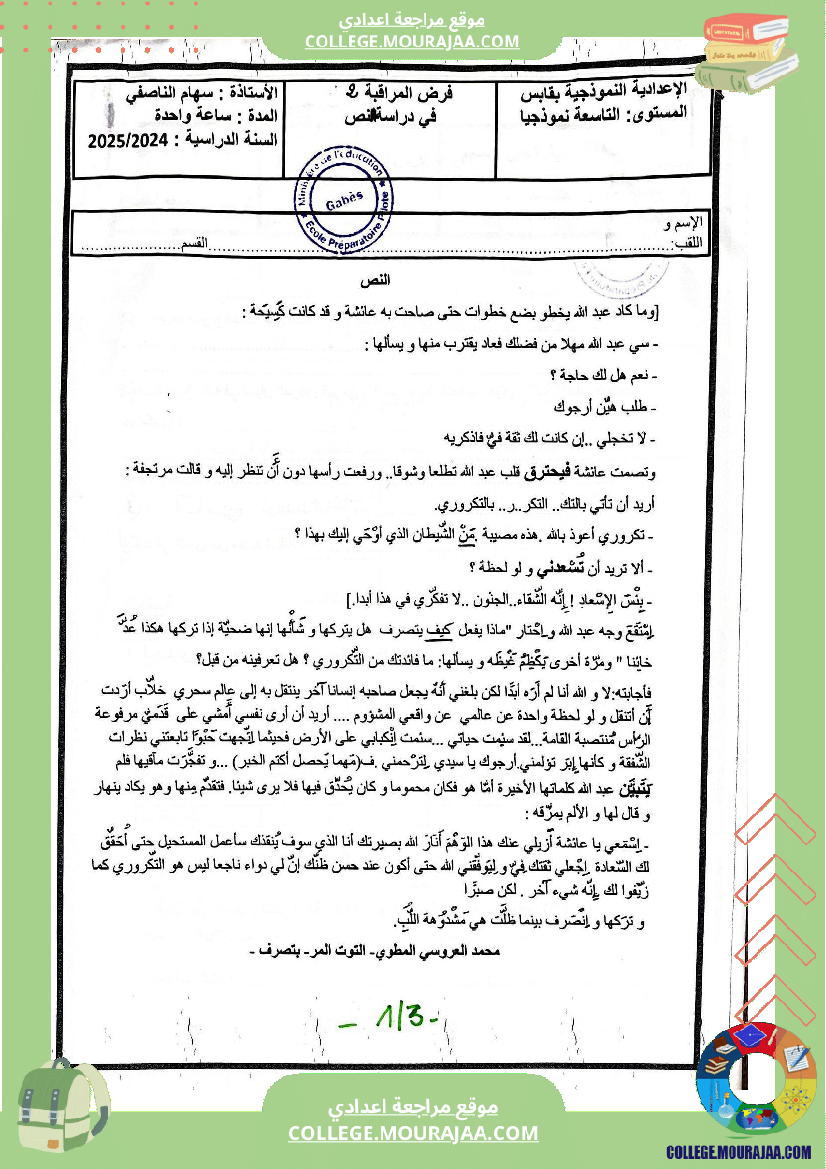 موقع مراجعة اعدادي
COLLEGE.MOURAJAA.COM
الإعدادية النموذجية بقابس
المستوى: التاسعة نموذجيا
فرض المراقبة 2
في دراسة النص
الأستاذة : سهام الناصفي
المدة : ساعة واحدة
السنة الدراسية : 2025/2024
Ministère de l'éducation
Gabès
Ecole Préparatoire Pilote
الإسم و
اللقب:......................................................القسم....................
النص
[وما كاد عبد الله يخطو بضع خطوات حتى صاحت به عائشة و قد كانت كَسِيحَة :
- سي عبد الله مهلا من فضلك فعاد يقترب منها و يسألها :
- نعم هل لك حاجة ؟
- طلب هيّن أرجوك
- لا تخجلي ..إن كانت لك ثقة فيّ فاذكريه
وتصمت عائشة فيحترق قلب عبد الله تطلعا وشوقا.. ورفعت رأسها دون أَن تنظر إليه و قالت مرتجفة :
أريد أن تأتي بالتك.. التكر..ر.. بالتكروري.
- تكروري أعوذ بالله .هذه مصيبة .مَنْ الشّيطان الذي أوْحَى إليك بهذا ؟
- ألا تريد أن تُسْعدني و لو لحظة ؟
- بِئْسَ الإسْعادِ ! إنّه الشّقاء..الجنون ..لا تفكّري في هذا أبدا.]
اِمْتَقَعَ وجه عبد الله و اِحْتار "ماذا يفعل كيف يتصرف هل يتركها و شَأْنُها إنها ضحيّة إذا تركها هكذا عُدَّ
خائنا " ومرّة أخرى يَكْظِمُ غَيْظَه و يسألها: ما فائدتك من التّكروري ؟ هل تعرفينه من قبل؟
فأجابته:لا و الله أنا لم أرَه أبدًا لكن بلغني أنّهُ يجعل صاحبه إنسانا آخر ينتقل به إلى عالم سحري خلّاب أرَدت
أن أتنقل و لو لحظة واحدة عن عالمي عن واقعي المشؤوم .... أريد أن أرى نفسي أمْشي على قَدَميَّ مرفوعة
الرّأس مُنتصبة القامة...لقد سئِمت حياتي ...سئمت اِنْكبابي على الأرض فحيثما اِتّجهت حَبْوًا تابعتني نظرات
الشّفقة و كأنها إبَر تؤلمني.أرجوك يا سيدي اِرْحمني .ف(مَهما يَحصل أكتم الخبر) ...و تفجَّرت مآقيها فلم
يَتَبيَّن عبد الله كلماتها الأخيرة أمّا هو فكان محموما و كان يُحَدّق فيها فلا يرى شيئا. فتقدّم مِنها وهو يكاد ينهار
و قال لها و الألم يمزّقه :
- اِسْتمعي يا عائشة أزيلي عنك هذا الوَهْمَ أَنَارَ الله بصيرتك أنا الذي سوف يُنقذك سأعمل المستحيل حتى أُحَقّقَ
لك السّعادة .اِجْعلي ثقتك فِيَّ و لِيُوَفّقني الله حتى أكون عند حسن ظنّك إنّ لي دواء ناجعا ليس هو التّكروري كما
زيّفوا لك .إنّه شيء آخر . لكن صبرًا
و تركها و اِنْصَرف بينما ظلَّت هي مَشْدُوهة اللُّبّ.
محمد العروسي المطوي- التوت المر- بتصرف -
- 1/3 -
موقع مراجعة اعدادي
COLLEGE.MOURAJAA.COM
COLLEGE.MOURAJAA.COM